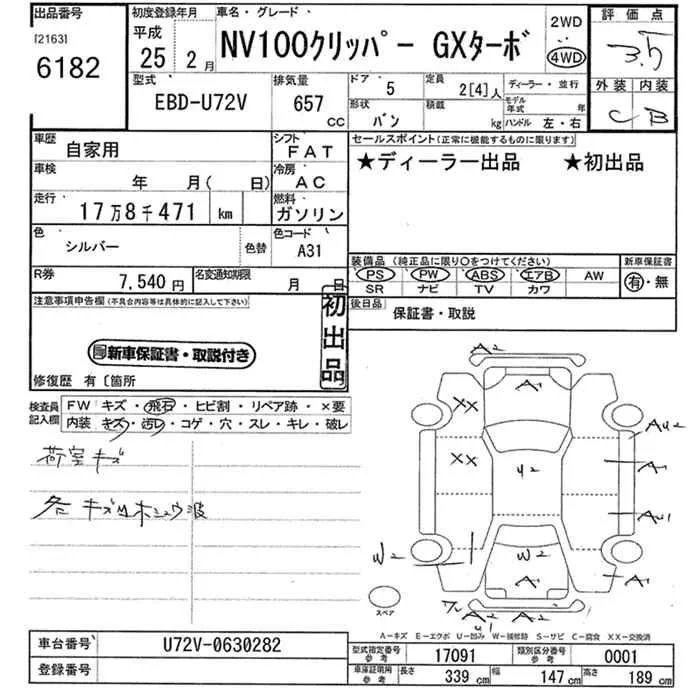 出品番号 初度登録年月 車名・グレード 2WD 評価点
[2163] 平成
6182 25 2月 NV100クリッパー GXターボ 4WD 3.5
型式 排気量 ドア 5 定員 2[4]人 ディーラー・並行 外装 内装
EBD-U72V 657 cc 形状 バン 積載 kg モデル年式 年 ハンドル 左・右 C B
車歴 自家用 シフト FAT セールスポイント(正常に機能するものに限ります)
車検 年 月( 日) 冷房 AC ★ディーラー出品 ★初出品
走行 17万8千471 km 燃料 ガソリン
色 シルバー 色替 色コード A31
装備品(純正品に限り○をつけてください) 新車保証書
R券 7,540円 名変通知期限 月 日 PS PW ABS エアB AW 有・無
SR ナビ TV カワ
注意事項申告欄(不具合内容等は具体的に記入して下さい) 初出品 後日品 保証書・取説
新車保証書・取説付き
修復歴 有〔箇所
検査員記入欄 FW キズ・飛石・ヒビ割・リペア跡・×要
内装 キズ・汚レ・コゲ・穴・スレ・キレ・破レ
荷室キズ
各キズ
A2
A1
XX
XX
U2
A1
W2
W2
A1
A1
スペア
A-キズ E-エクボ U-凹み W-補修跡 S-サビ C-腐食 XX-交換済
車台番号 U72V-0630282 型式指定番号 参考 17091 類別区分番号 参考 0001
登録番号 車庫証明用 参考 長さ 339cm 幅 147cm 高さ 189cm